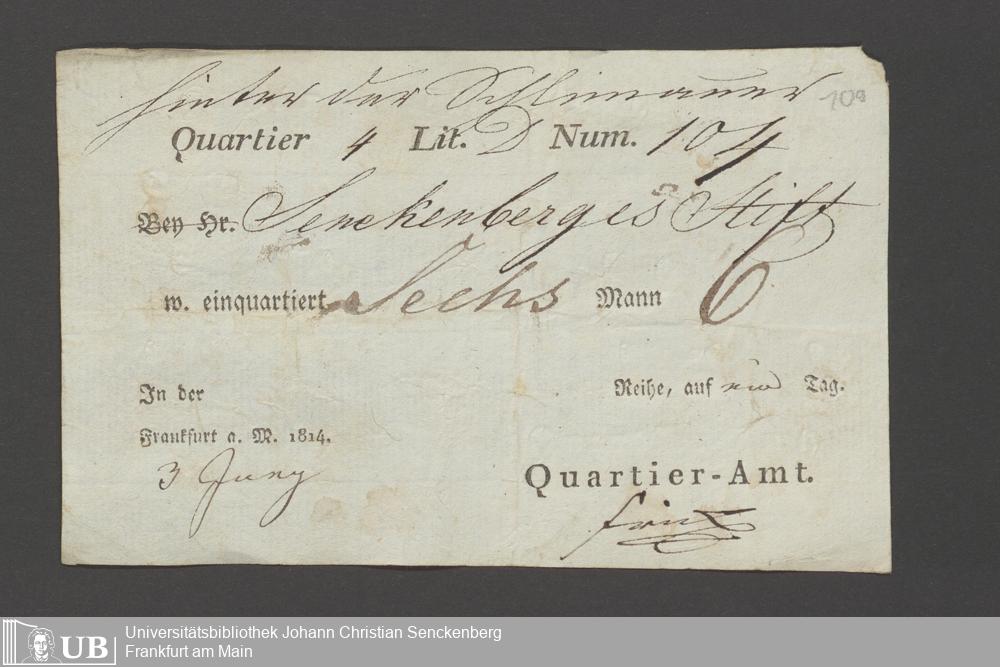 hinter der Schlimauer
108
Quartier 4 Lit. D Num. 104
Bey Hr. Senckenberges Stift
w. einquartiert Sechs Mann 6
In der Reihe, auf ein Tag.
Frankfurt a. M. 1814.
3 Juny
Quartier-Amt.
UB
Universitätsbibliothek Johann Christian Senckenberg
Frankfurt am Main